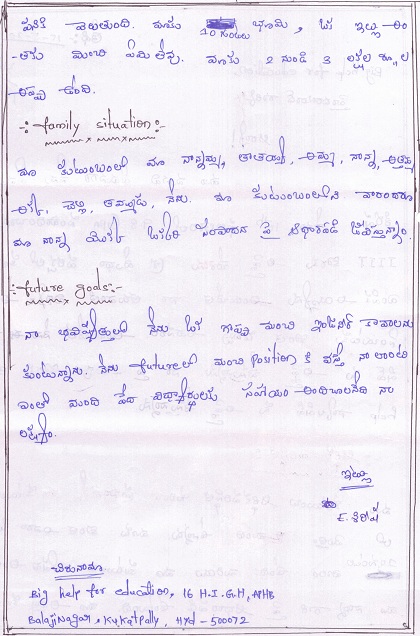 పనికి వెలుతుంది. మాకు 10 గుంటలు భూమి, ఒక ఇల్లు అం
-తకు మించి ఏమి లేవు. మాకు 2 నుండి 3 లక్షల రూ,,ల
అప్పు ఉంది.
-:- family situation:-
మా కుటుంబంలో మా నాన్నమ్మ, తాతయ్య, అమ్మ, నాన్న,
అక్క, చెల్లి, తమ్ముడు, నేను. మా కుటుంబంలోని వారందరూ
మా నాన్న యొక్క ఒక్కరి సంపాదన పై ఆధారపడి జీవిస్తున్నాం.
-:- future goals:-
నా భవిష్యత్తులో నేను ఒక గొప్ప మంచి ఇంజనీర్ కావాలను
కుంటున్నాను. నేను futureలో మంచి position కి వస్తే నా లాంటి
ఎంతో మంది పేద విద్యార్థులకు సహాయం అందించాలనేది నా
లక్ష్యం.
ఇట్లు
E. శిరీష
చిరునామా
Big help for education, 16 H.I.G.H, APHB
Balaji Nagar, Kukatpally, Hyd - 500072